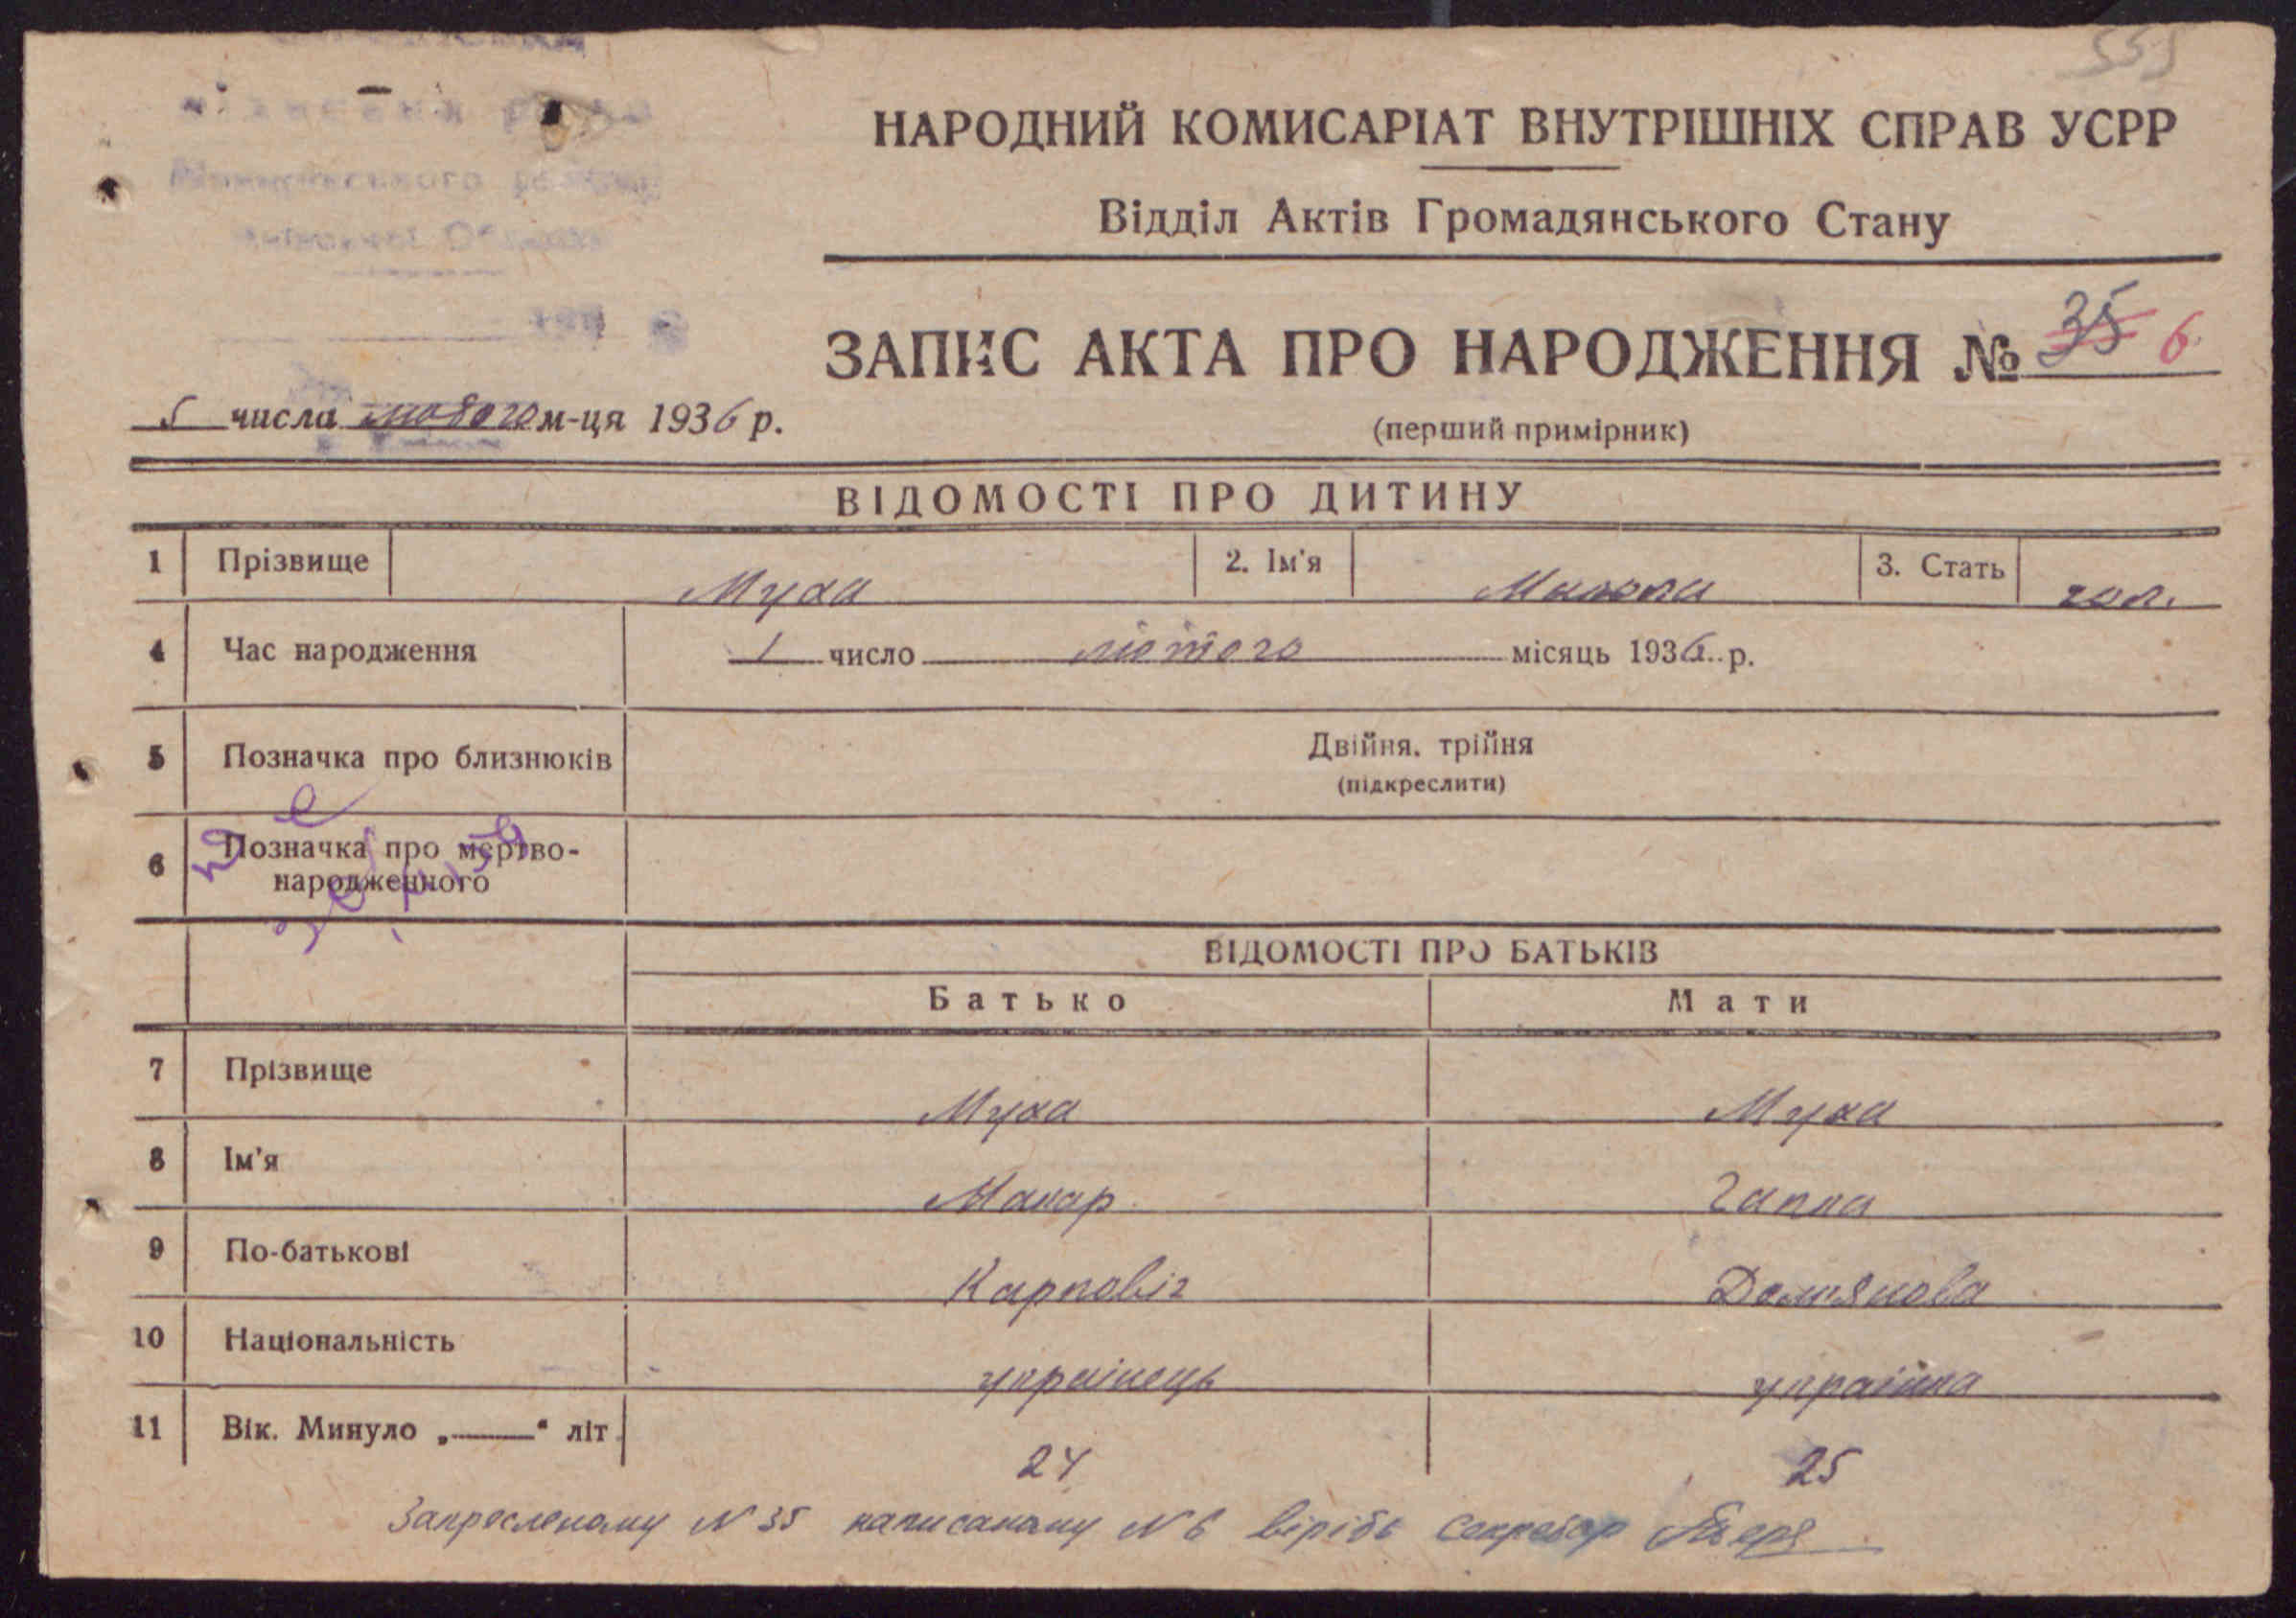 555
НАРОДНИЙ КОМИСАРІАТ ВНУТРІШНІХ СПРАВ УСРР
Відділ Актів Громадянського Стану
ЗАПИС АКТА ПРО НАРОДЖЕННЯ № 35 6
5 числа лютого м-ця 1936 р.
(перший примірник)
ВІДОМОСТІ ПРО ДИТИНУ
1 Прізвище Муха 2. Ім'я Микола 3. Стать чол.
4 Час народження 1 число лютого місяць 1936 р.
5 Позначка про близнюків Двійня, трійня
(підкреслити)
6 Позначка про мертво-
народженного
ВІДОМОСТІ ПРО БАТЬКІВ
Батько Мати
7 Прізвище Муха Муха
8 Ім'я Макар Гапка
9 По-батькові Карповіч Дем'янова
10 Національність українець українка
11 Вік. Минуло „——" літ 24 25
Закресленому N 35 написаному N 6 вірить Секретар